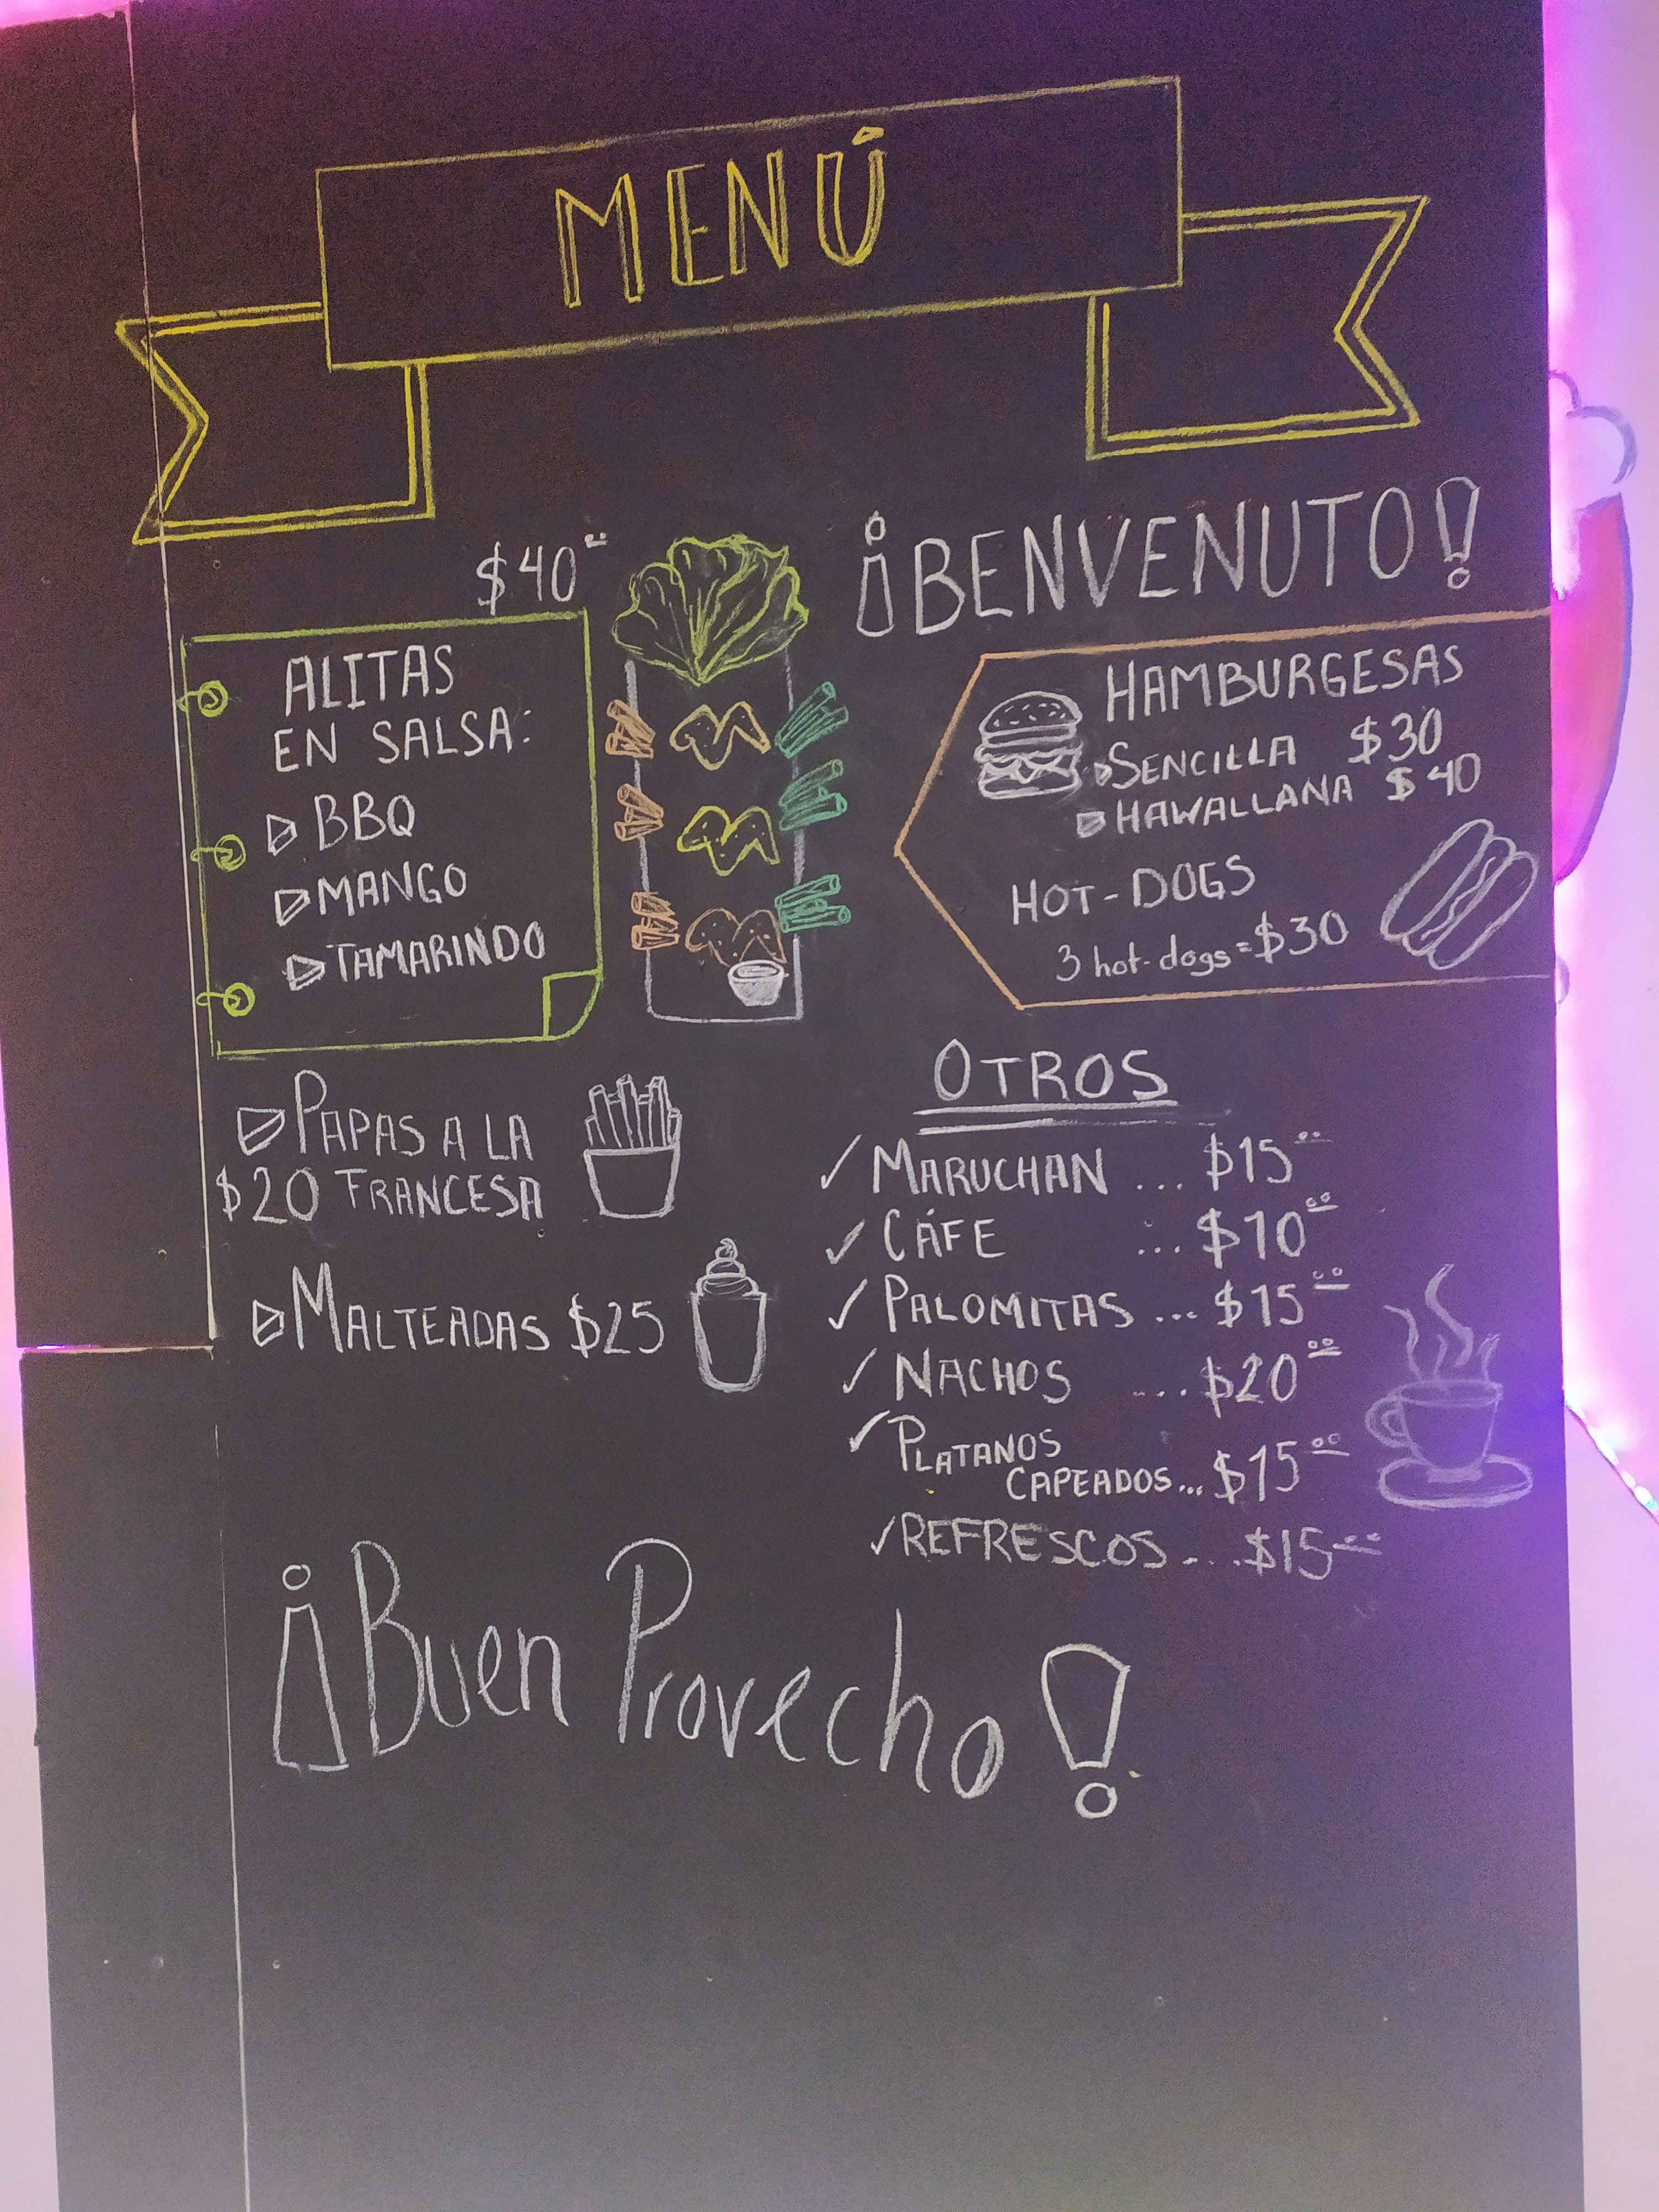 MENÚ
¡BENVENUTO!
$40
ALITAS
EN SALSA:
BBQ
MANGO
TAMARINDO
HAMBURGESAS
SENCILLA $30
HAWALLANA $40
HOT-DOGS
3 hot-dogs=$30
PAPAS A LA
$20 FRANCESA
MALTEADAS $25
OTROS
✓ MARUCHAN ... $15.00
✓ CÁFE ... $10.00
✓ PALOMITAS ... $15.00
✓ NACHOS ... $20.00
✓ PLATANOS
CAPEADOS... $15.00
✓ REFRESCOS ... $15.00
¡Buen Provecho!